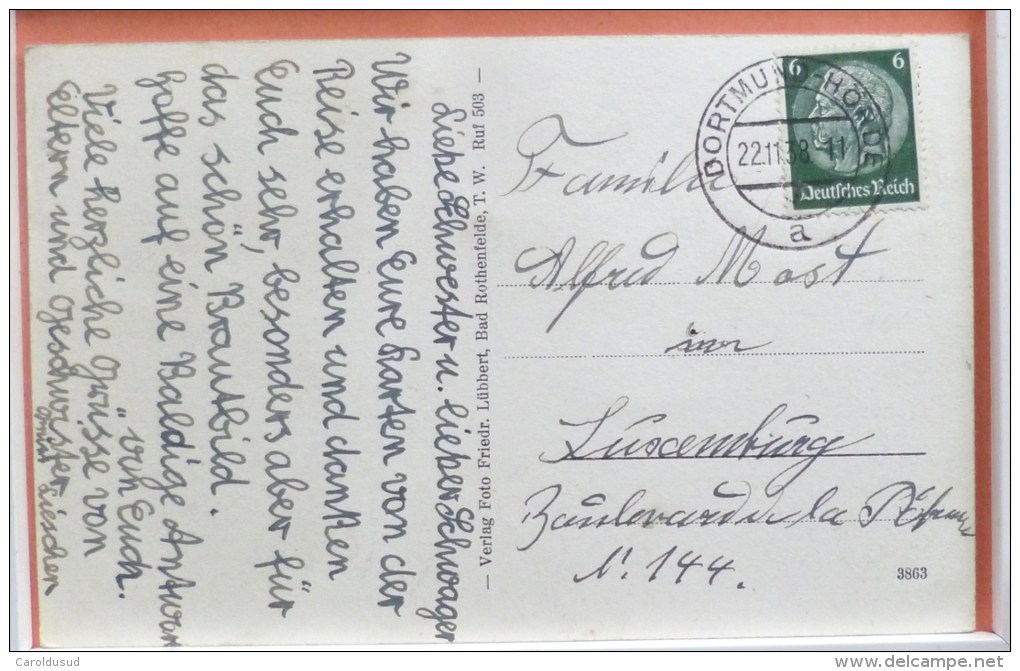 Liebe Schwester u. lieber Schwager
Wir haben Eure Karten von der
Reise erhalten und danken
Euch sehr, besonders aber für
das schön Brautbild.
hoffe auf eine Baldige Antwort
von Euch.
Viele herzliche Grüsse von
Eltern und Geschwister
Lieschen
— Verlag Foto Friedr. Lübbert, Bad Rothenfelde, T. W. Ruf 503 —
6 6
Deutsches Reich
DORTMUND-HÖRDE
22.11.38 11
a
Familie
Alfred Most
in
Luxemburg
Boulevard de la Pétrusse
N. 144.
3863
Caroldusud
www.delcampe.net